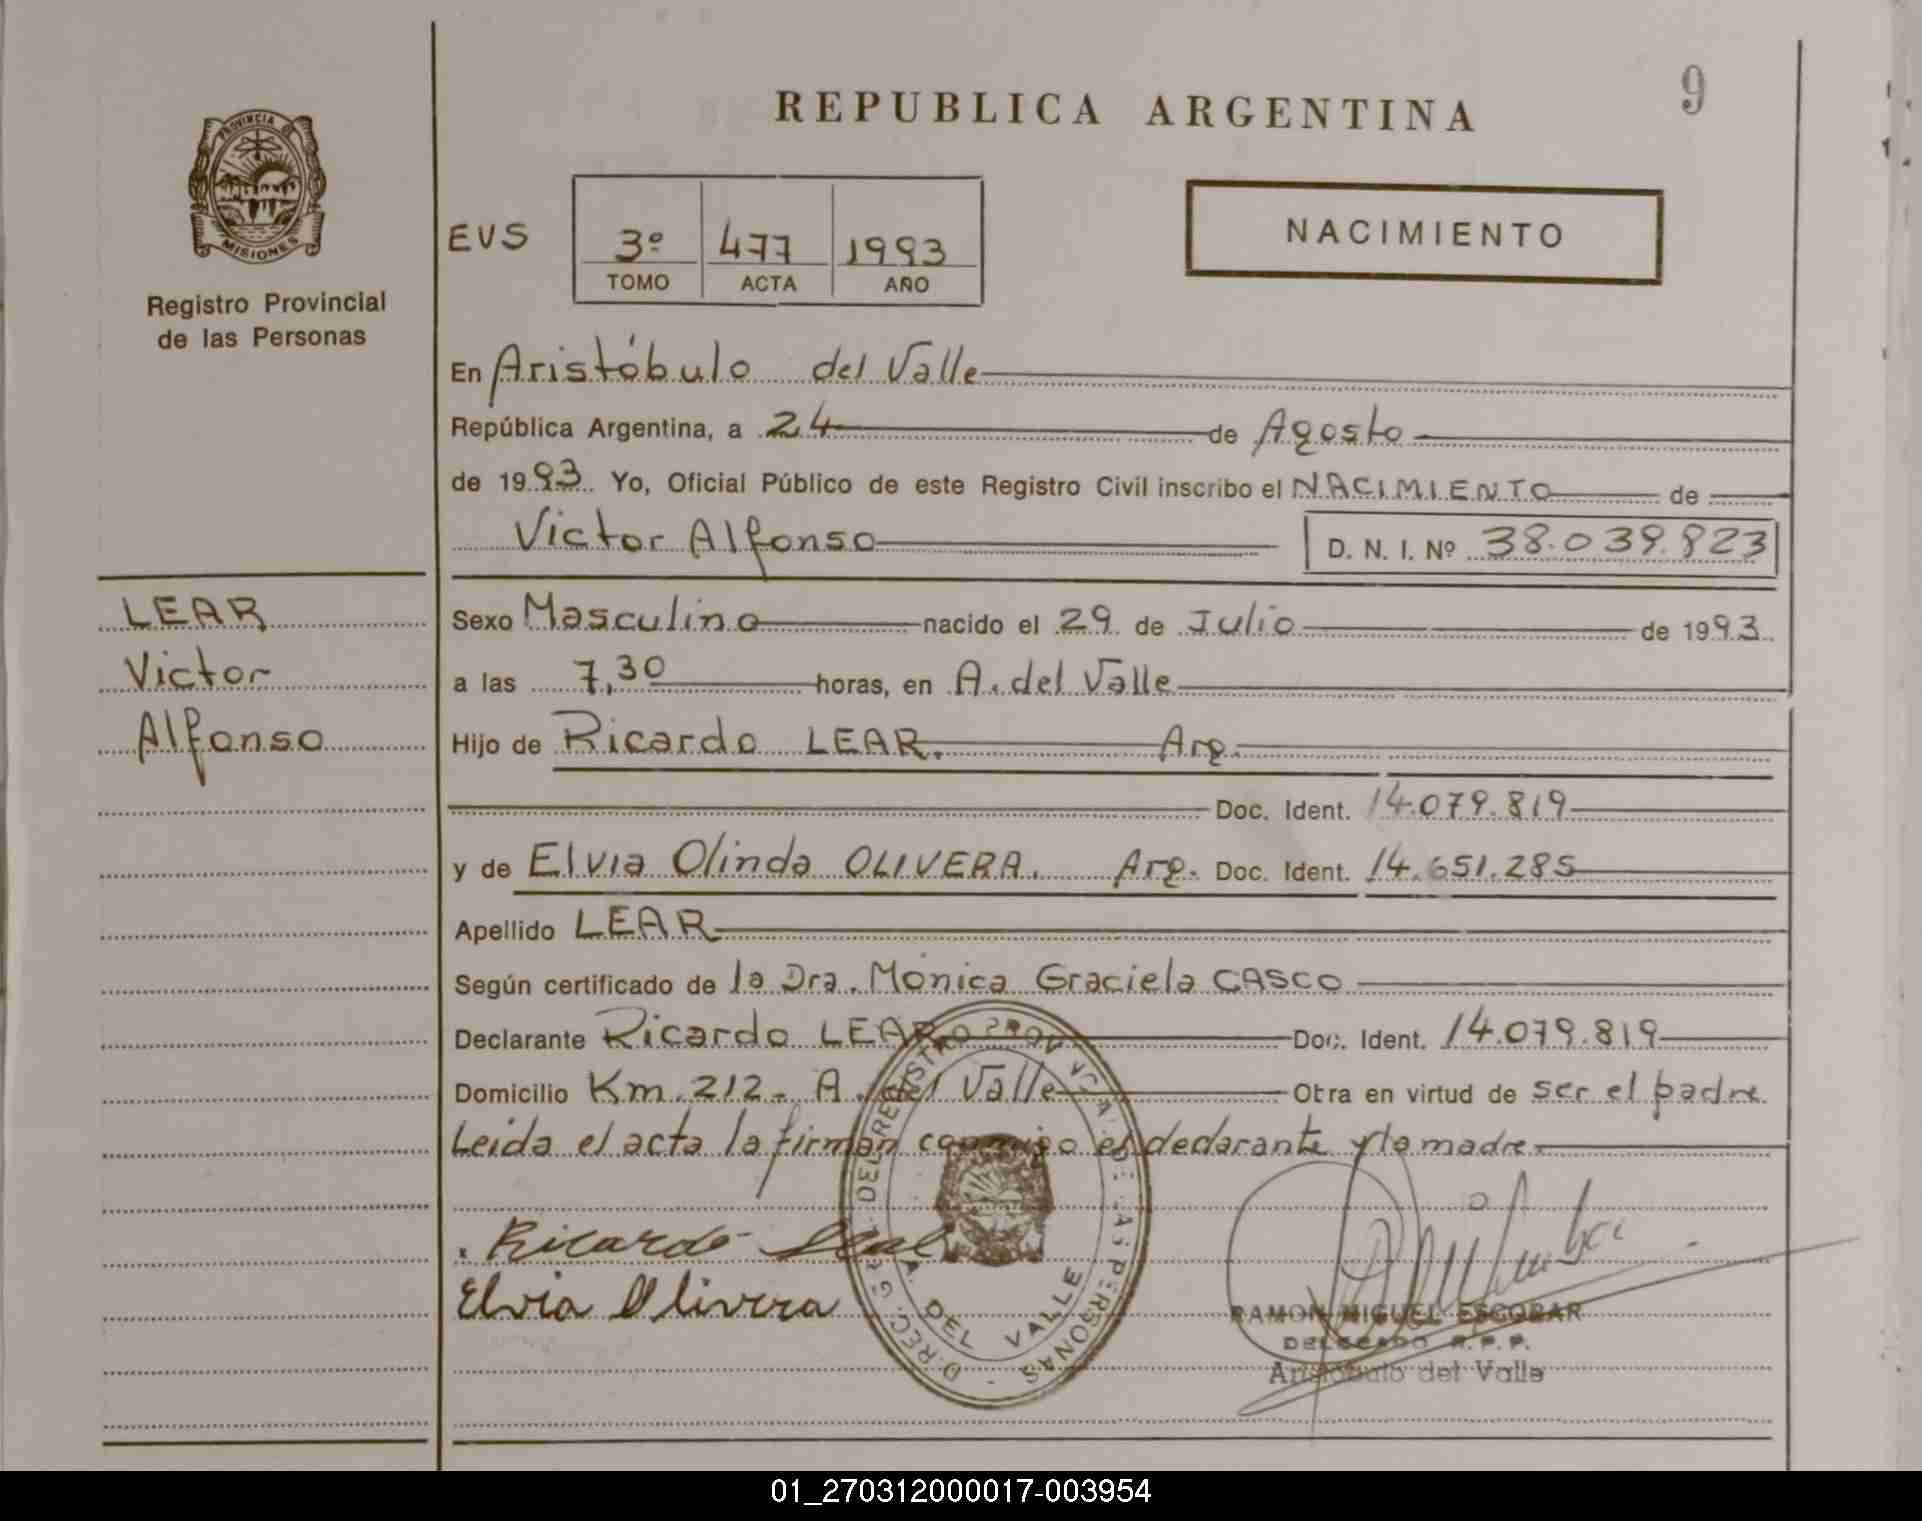 9
REPUBLICA ARGENTINA
PROVINCIA DE
MISIONES
Registro Provincial
de las Personas
EVS
3º 477 1993
TOMO ACTA AÑO
NACIMIENTO
En Aristóbulo del Valle
República Argentina, a 24 de Agosto
de 1993 Yo, Oficial Público de este Registro Civil inscribo el NACIMIENTO de
Victor Alfonso D. N. I. Nº 38.039.823
LEAR
Victor
Alfonso
Sexo Masculino nacido el 29 de Julio de 1993
a las 7,30 horas, en A. del Valle
Hijo de Ricardo LEAR. Arg.
Doc. Ident. 14.079.819
y de Elvia Olinda OLIVERA. Arg. Doc. Ident. 14.651.285
Apellido LEAR
Según certificado de la Dra. Mónica Graciela CASCO
Declarante Ricardo LEAR Doc. Ident. 14.079.819
Domicilio Km. 212 - A. del Valle Obra en virtud de ser el padre
Leida el acta la firman conmigo el declarante y la madre
Ricardo Lear
Elvia Olivera
DIREC. GRAL. DEL REGISTRO PROVINCIAL DE LAS PERSONAS
A. DEL VALLE
RAMON MIGUEL ESCOBAR
DELEGADO R.P.P.
Aristóbulo del Valle
01_270312000017-003954